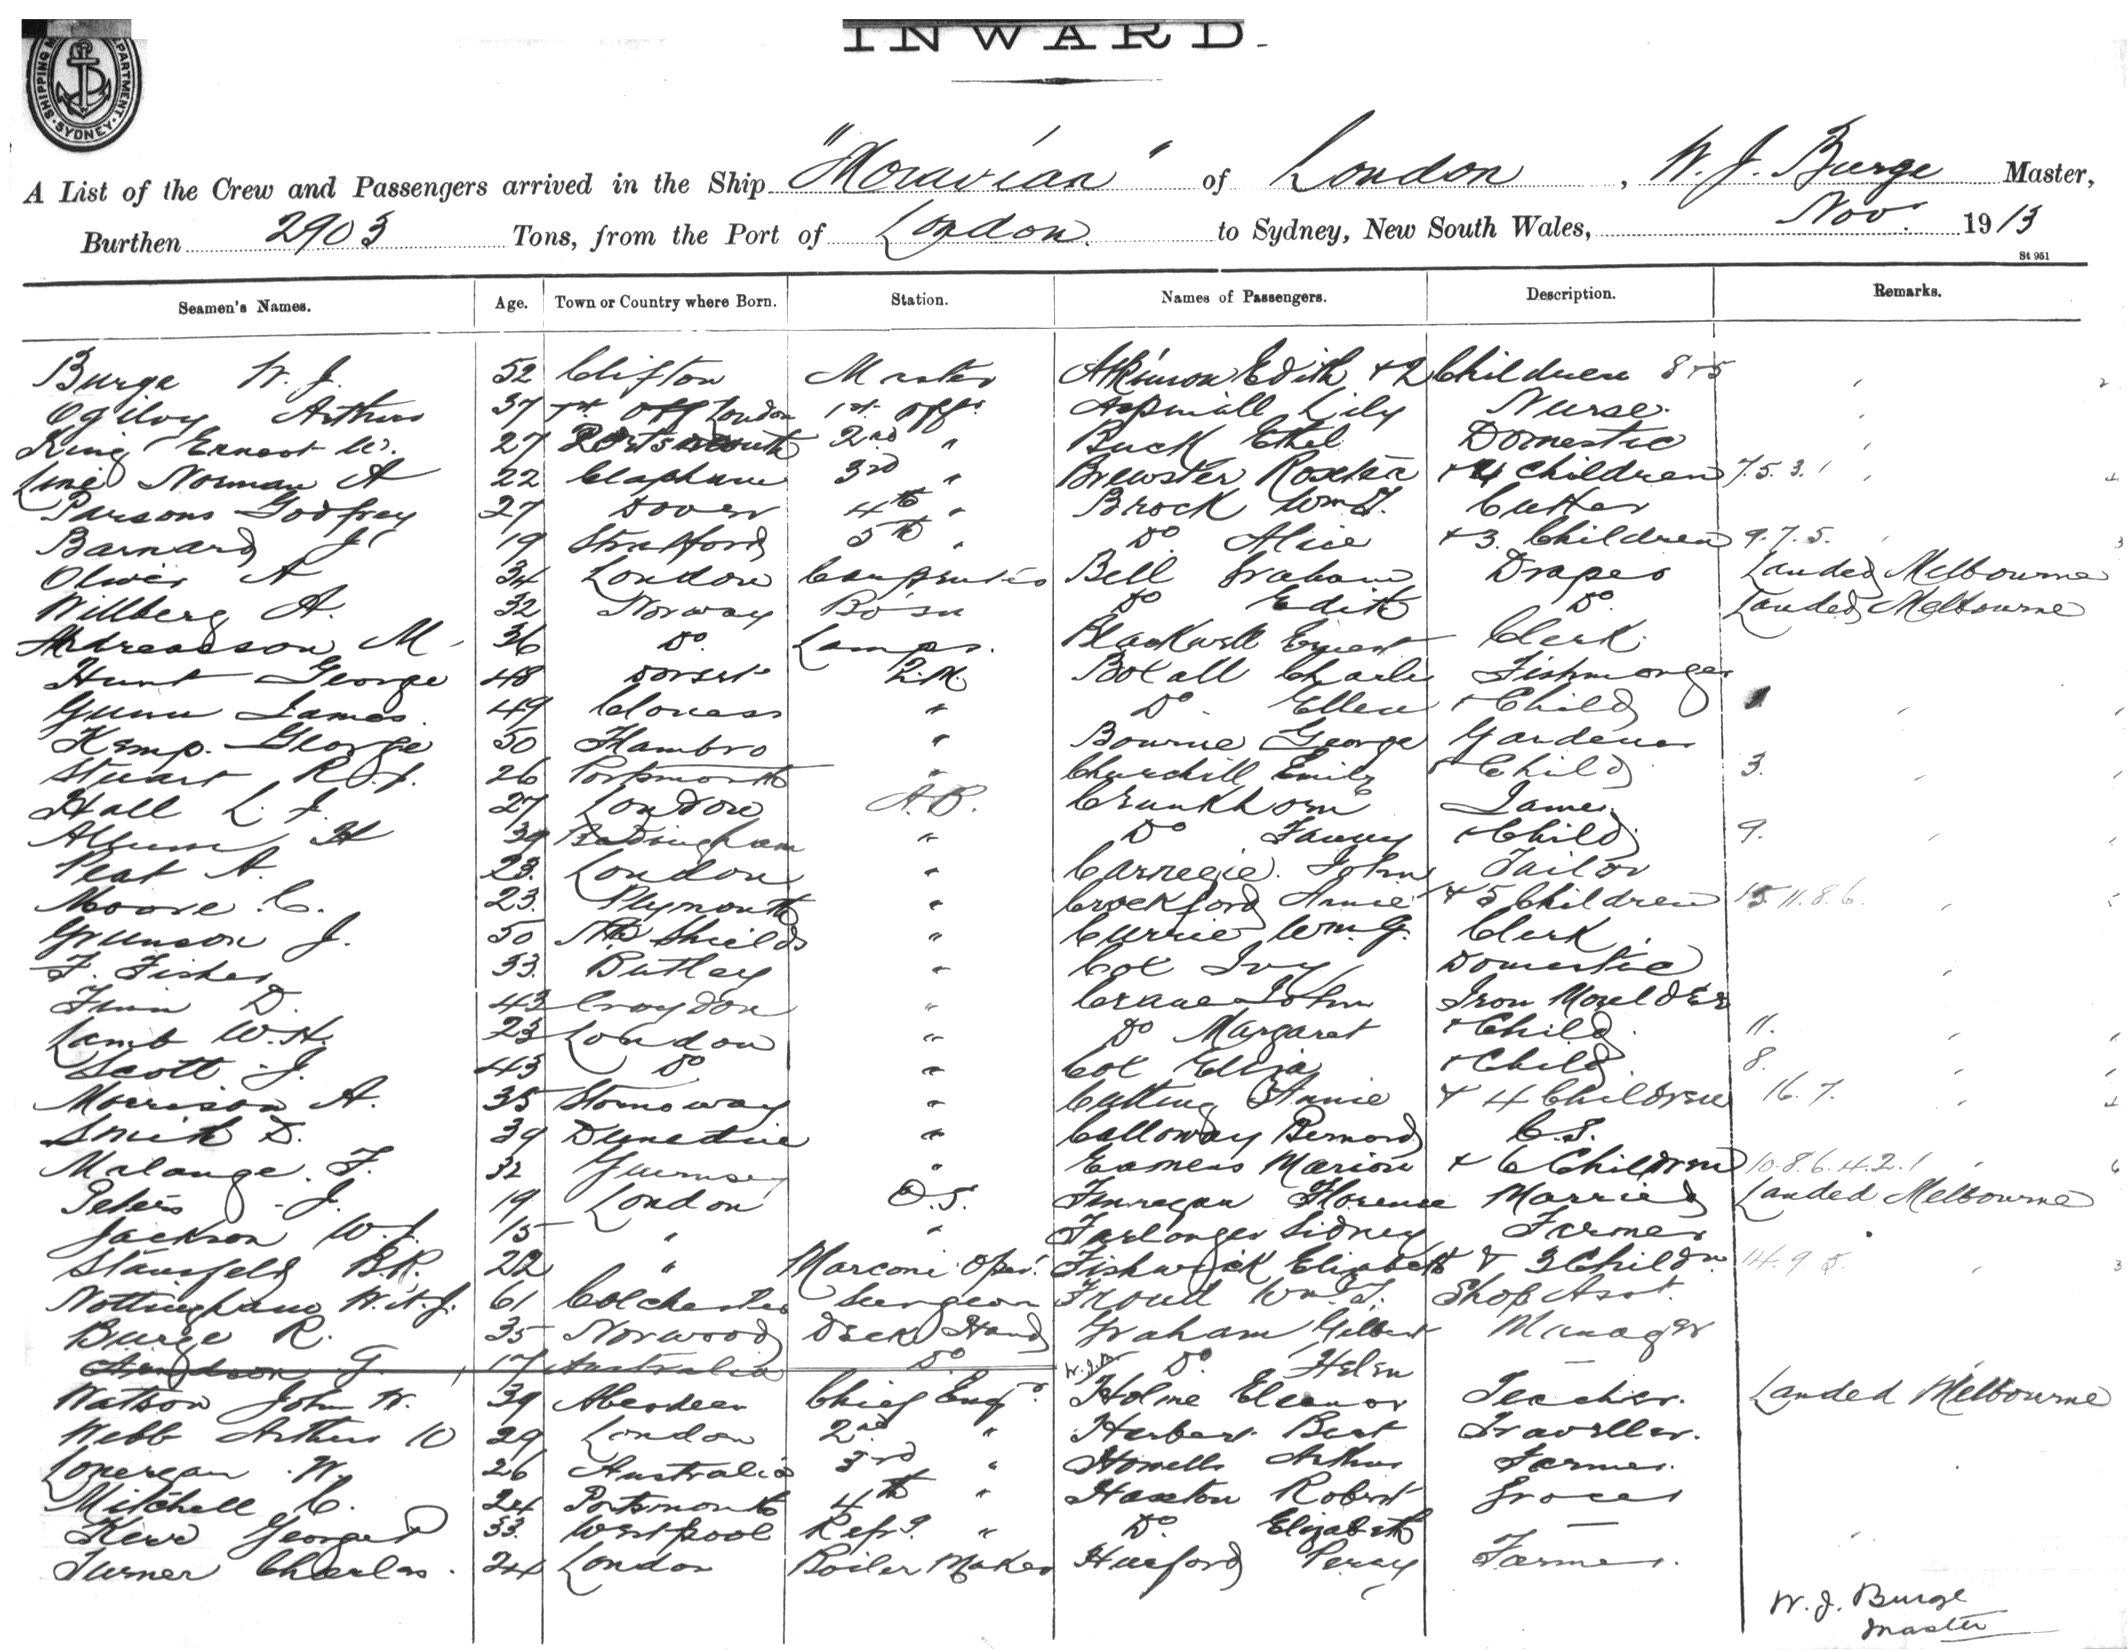 INWARD.
SHIPPING DEPARTMENT SYDNEY
A List of the Crew and Passengers arrived in the Ship "Moravian" of London, W. J. Burge Master,
Burthen 2903 Tons, from the Port of London. to Sydney, New South Wales, Nov. 1913
St 951
Seamen's Names. Age. Town or Country where Born. Station. Names of Passengers. Description. Remarks.
Burge W. J. 52 Clifton Master Atkinson Edith + 2 Children 8+5
Ogilvy Arthur 37 London 1st Offr Aspinall Lily Nurse.
King Ernest W. 27 Portsmouth 2nd " Buck Ethel Domestic
Norman A 22 Clapham 3rd " Brewster + 4 Children 7.5.3.1
Parsons Godfrey 27 Dover 4th " Brock Wm J. Cutter
Barnard J 19 Stratford 5th " Do Alice + 3 Children 9.7.5.
Oliver A 34 London Carpenter Bell Graham Draper Landed Melbourne
Willberg A. 32 Norway Bo'sn Do Edith Do Landed Melbourne
Andreasson M 36 Do. Lamps. Blackwell Ernest Clerk.
Hunt George 48 Dorset Q.M. Boxall Charles Fishmonger
Gunn James. 49 " Do. Ellen + Child
Kemp. George 50 Hambro " Bourne George Gardener
Stuart R. J. 26 Portsmouth " Churchill Emily + Child 3.
Hall L. J. 27 London A.B. Crunkhorn James
Album H 39 " Do Fanny + Child 9.
Peat A. 23. London " Carnegie. John Tailor
Moore. C. 23. Plymouth " Crockford Annie + 5 Children 15 11.8.6.
Grunson J. 50 Nth Shields " Currie Wm. G. Clerk.
F. Fisher 33. Butley " Cox Ivy Domestic
Finn D. 43 Croydon " Crane John Iron Moulder
Lamb W. H. 23 London " Do Margaret + Child. 11.
Scott J. 43 Do " Cox Eliza + Child. 8.
Morrison A. 35 Stornoway " Cutting Annie + 4 Children 16.7.
Smith D. 39 Dunedin " Calloway Bernard
Malange. F. 32 Guernsey " Eamens Marion + 6 Children 10.8.6.4.2.1
Peters J. 19 London O.S. Finnegan Florence Married Landed Melbourne
Jackson W. J. 15 " " Farlonger Sidney Farmer
Stansfeld B.R. 22 " Marconi Oper. Fishwick Elizabeth + 3 Childn. 14.9.5.
Nottingham W. H. J. 61 Colchester Surgeon Froud Wm. J. Shop Asst.
Burge R. 35 Norwood Deck Hand Graham Gilbert Manager
G. 17 Australia Do W.J.B. Do. Helen —
Watson John W. 39 Aberdeen Chief Engr. Holme Eleanor Teacher. Landed Melbourne
Webb Arthur W 29 London 2nd " Herbert Bert Traveller.
Lonergan W. 26 Australia 3rd " Howells Arthur Farmer.
Mitchell C. 24 Portsmouth 4th " Haxton Robert Grocer
Kerr George 33. Refrg. " Do. Elizabeth —
Turner Charles. 24 London Boiler Maker Huxford Percy Farmer.
W. J. Burge
Master